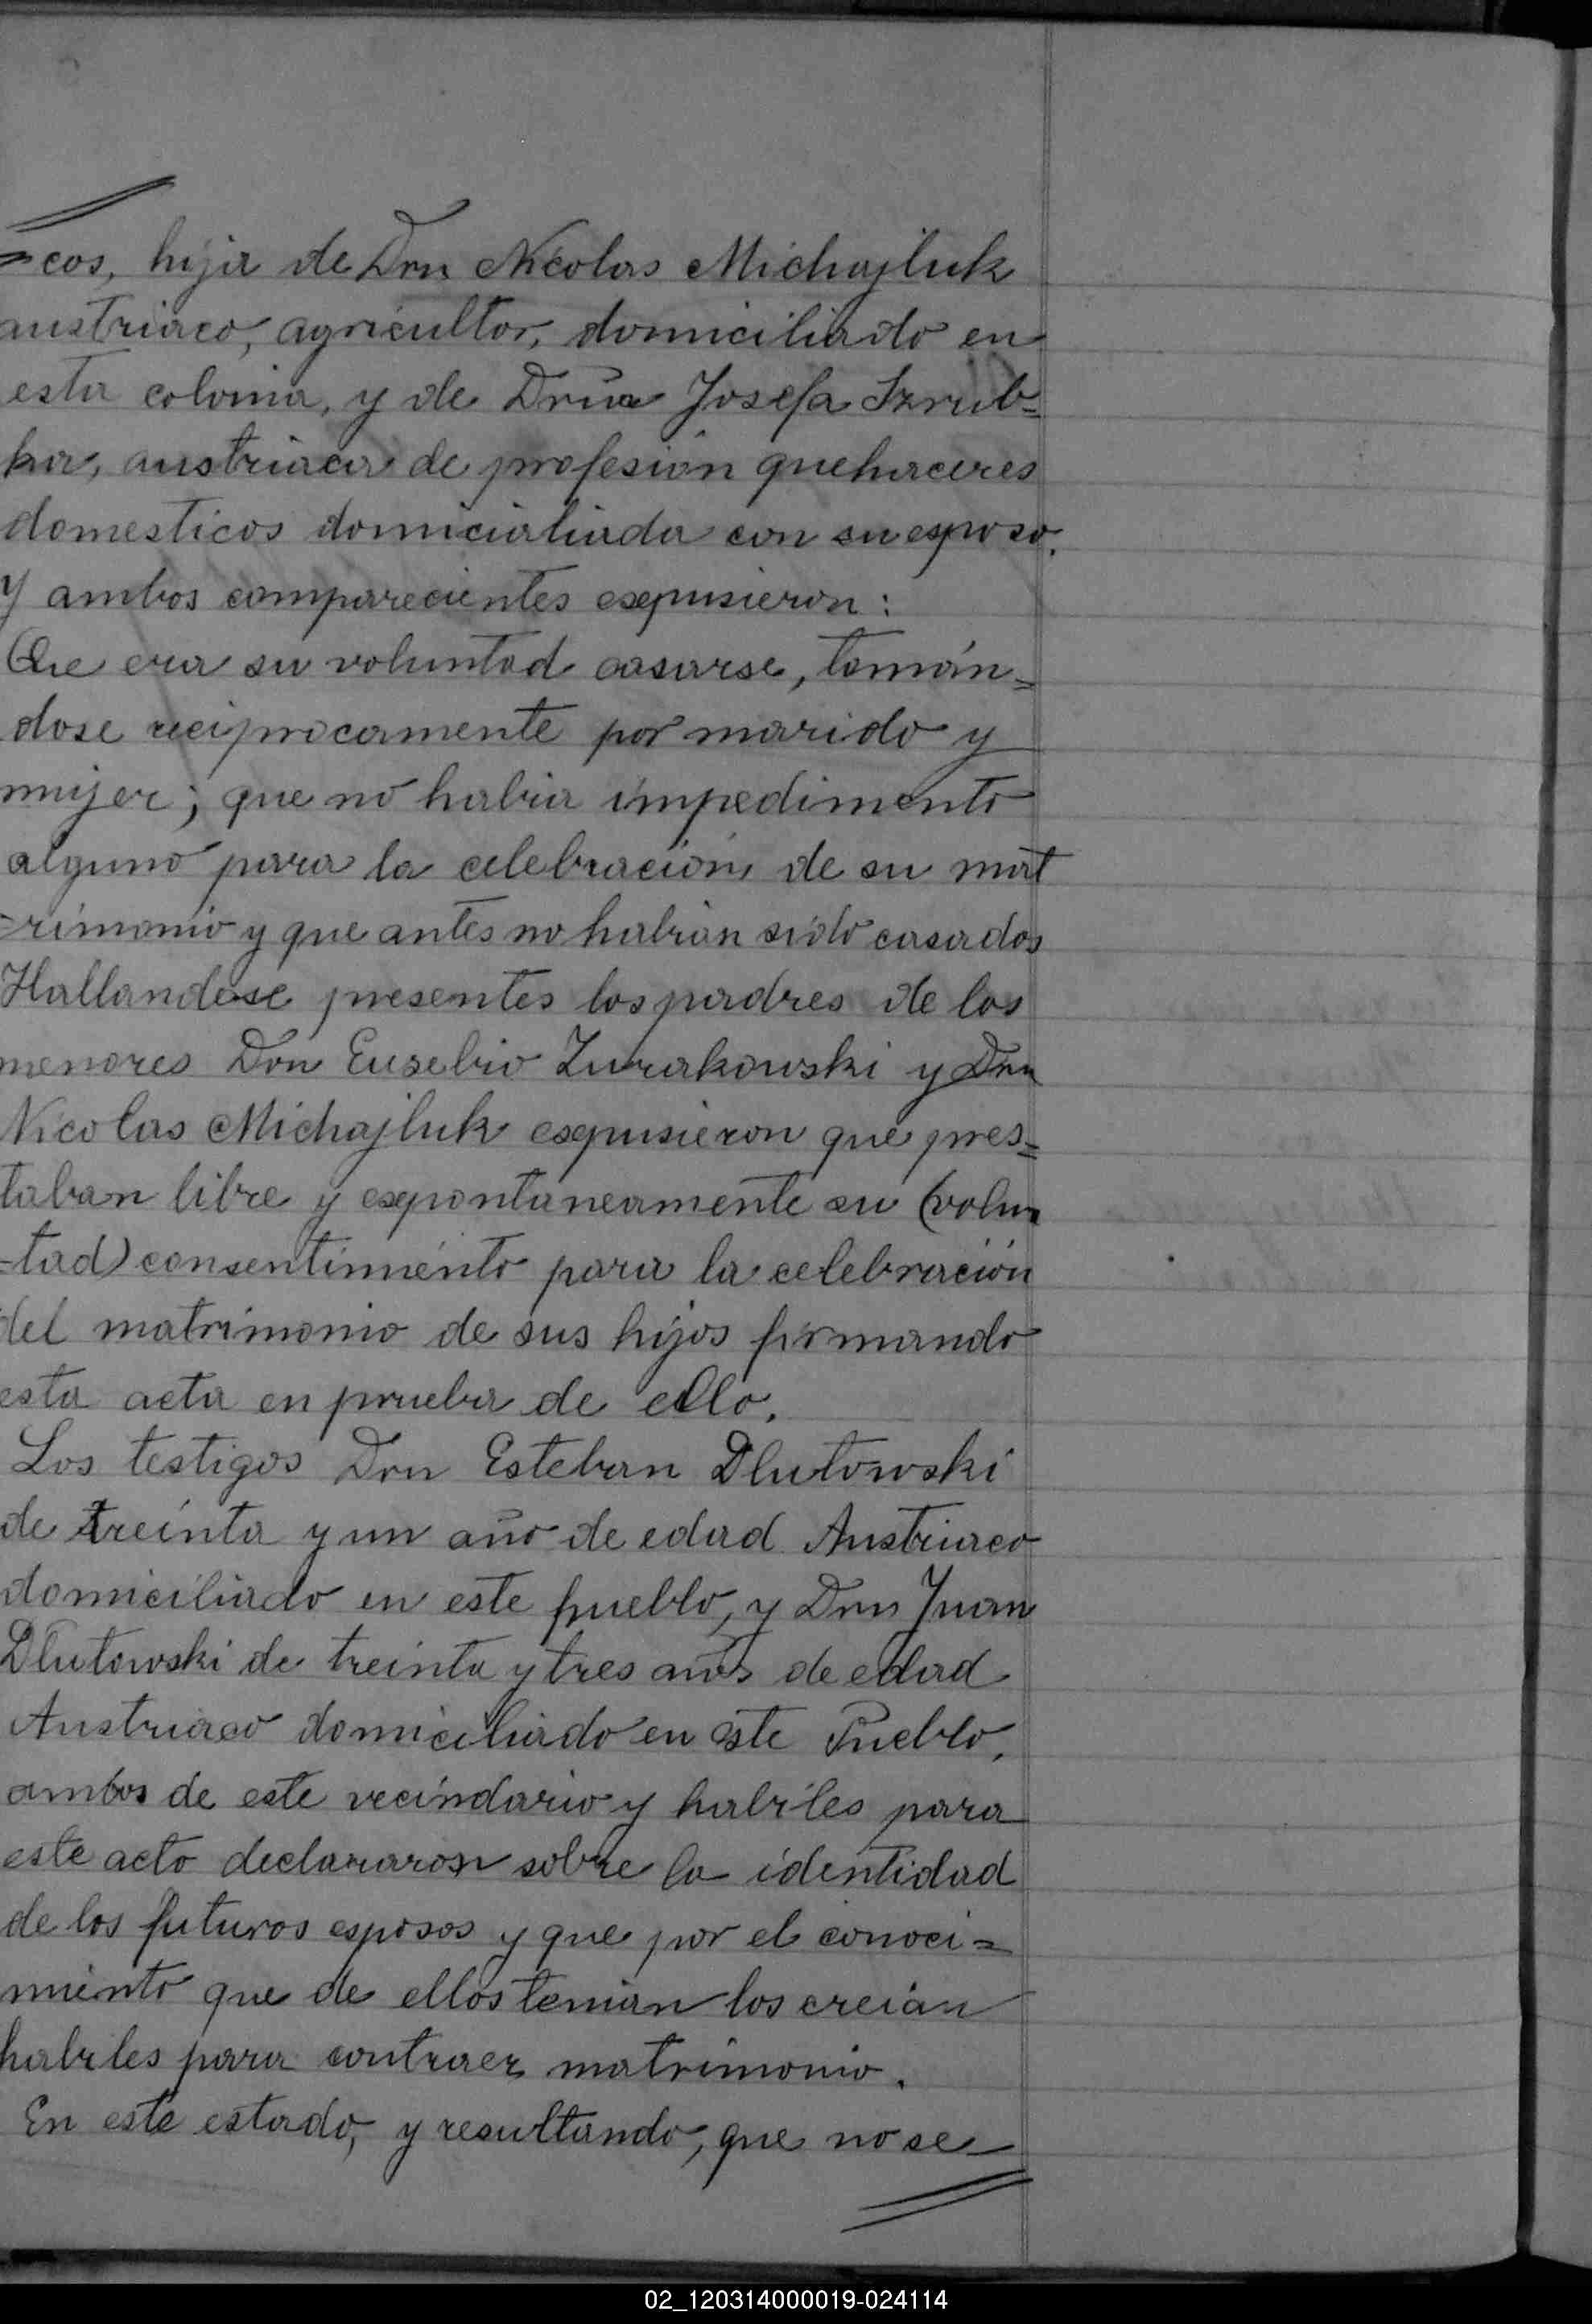 =cos, hija de Don Nicolas Michajluk
austriaco, agricultor, domiciliado en
esta colonia, y de Doña Josefa Szrub=
ka, austriaca de profesión quehaceres
domesticos domicialiada con su esposo.
Y ambos comparecientes esepusieron:
Que era su voluntad casarse, tomán=
dose reciprocamente por marido y
mujer; que no habia impedimento
alguno para la celebración de su mat
=rimonio y que antes no habian sido casados
Hallandose presentes los padres de los
menores Don Eusebio Zurakowski y Don
Nicolas Michajluk esepusieron que pres=
taban libre y esepontaneamente su (volun
=tad) consentimiento para la celebración
del matrimonio de sus hijos firmando
esta acta en prueba de ello.
Los testigos Don Esteban Dlutowski
de treinta y un año de edad Austriaco
domiciliado en este pueblo, y Don Juan
Dlutowski de treinta y tres años de edad
Austriaco domiciliado en este Pueblo,
ambos de este vecindario y habiles para
este acto declararon sobre la identidad
de los futuros esposos y que por el conoci=
miento que de ellos tenian los creian
habiles para contraer matrimonio.
En este estado, y resultando, que no se
02_120314000019-024114